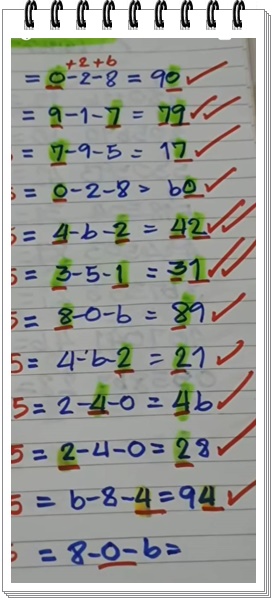 +2+6
= 0-2-8 = 90
= 9-1-7 = 79
= 7-9-5 = 17
= 0-2-8 > 60
5 = 4-6-2 = 42
5 = 3-5-1 = 31
5 = 8-0-6 = 89
5 = 4-6-2 = 21
5 = 2-4-0 = 46
5 = 2-4-0 = 28
5 = 6-8-4 = 94
= 8-0-6 =